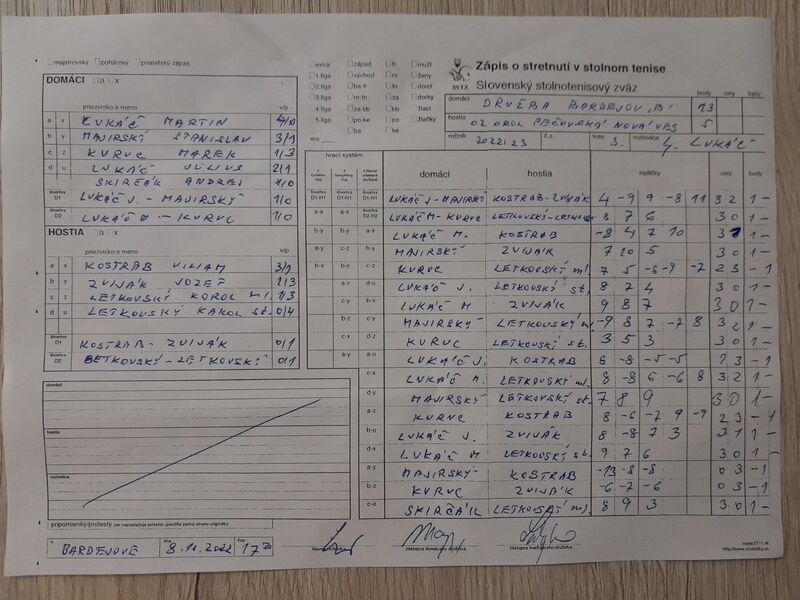 majstrovský pohárový priateľský zápas
DOMÁCI a x
priezvisko a meno v/p
a x LUKÁČ MARTIN 4/0
b y MAJIRSKÝ STANISLAV 3/1
c z KURUC MAREK 1/3
d u LUKÁČ JÚLIUS 2/1
SKIRČÁK ANDREJ 1/0
štvorhra D1 LUKÁČ J. - MAJIRSKÝ 1/0
štvorhra D2 LUKÁČ M - KURUC 1/0
HOSTIA a x
priezvisko a meno v/p
a x KOSTRAB VILIAM 3/1
b y ZVIJÁK JOZEF 1/3
c z LETKOVSKÝ KAROL ml. 1/3
d u LETKOVSKÝ KAROL st. 0/4
štvorhra D1 KOSTRAB - ZVIJÁK 0/1
štvorhra D2 LETKOVSKÝ - LETKOVSKÝ 0/1
domáci
hostia
rozhodca
pripomienky/protesty (ak nepostačuje priestor, použite zadnú stranu originálu)
BARDEJOVE dňa 8.11.2022 čas 17 20
extra západ tl muži
1.liga východ nr ženy
2.liga ba-tt tn dorci
3.liga nr-bi za dorky
4.liga za-bb bb žiaci
5.liga po-ke po žiačky
ba ke
mo
SSTZ
Zápis o stretnutí v stolnom tenise
Slovenský stolnotenisový zväz
body sety lopty
domáci DRUŽBA BARDEJOV "B" 13
hostia OZ OROL PEČOVSKÁ NOVÁ VES 5
ročník 2022/23 č.z. kolo 3. rozhodca LUKÁČ
hrací systém domáci hostia loptičky sety body
LUKÁČ J - MAJIRSKÝ KOSTRAB - ZVIJÁK 4 -9 9 -8 11 3 2 1 -
LUKÁČ M - KURUC LETKOVSKÝ - LETKOVSKÝ 8 7 6 3 0 1 -
LUKÁČ M. KOSTRAB -8 4 7 10 3 1 1 -
MAJIRSKÝ ZVIJÁK 7 10 5 3 0 1 -
KURUC LETKOVSKÝ ml. 7 5 -6 -9 -7 2 3 - 1
LUKÁČ J. LETKOVSKÝ st. 8 7 4 3 0 1 -
LUKÁČ M ZVIJÁK 9 8 7 3 0 1 -
MAJIRSKÝ LETKOVSKÝ ml. -9 8 7 -7 8 3 2 1 -
KURUC LETKOVSKÝ st. 3 5 3 3 0 1 -
LUKÁČ J. KOSTRAB 6 -8 -5 -5 1 3 - 1
LUKÁČ M. LETKOVSKÝ ml. 8 -8 6 -6 8 3 2 1 -
MAJIRSKÝ LETKOVSKÝ st. 7 8 9 3 0 1 -
KURUC KOSTRAB 8 -6 -7 9 -9 2 3 - 1
LUKÁČ J. ZVIJÁK 8 -8 7 3 3 1 1 -
LUKÁČ M LETKOVSKÝ st. 9 7 6 3 0 1 -
MAJIRSKÝ KOSTRAB -13 -8 -8 0 3 - 1
KURUC ZVIJÁK -6 -7 -6 0 3 - 1
SKIRČÁK LETKOVSKÝ ml. 8 9 3 3 0 1 -
hlavný rozhodca zástupca domáceho družstva zástupca hosťujúceho družstva